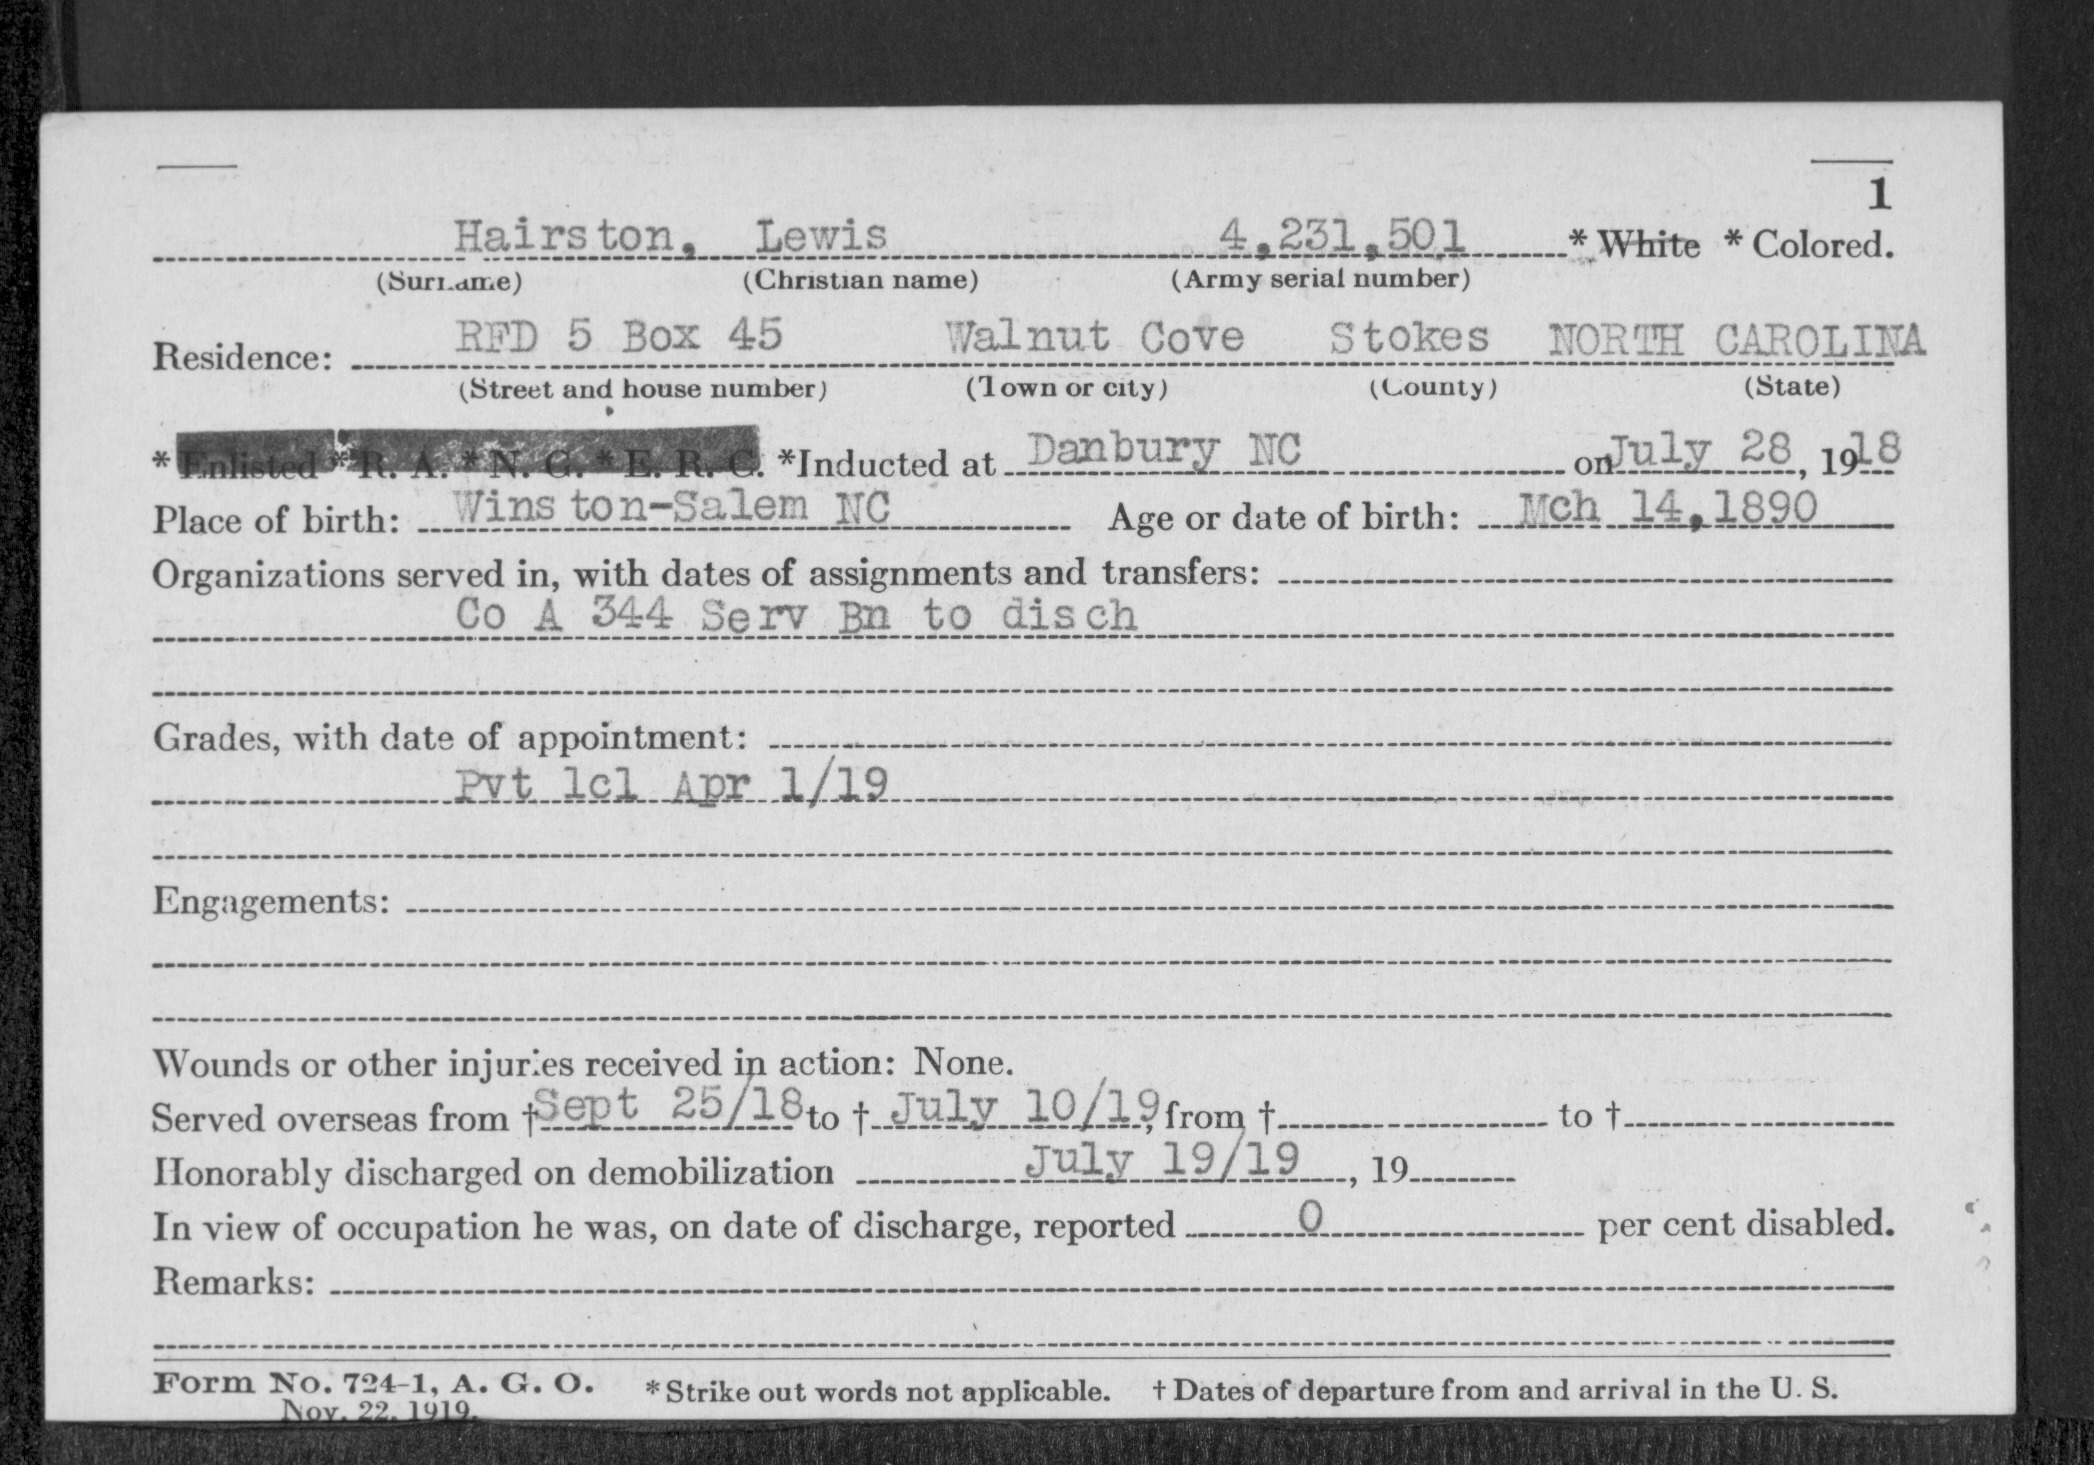 1
Hairston, Lewis 4,231,501 * White * Colored.
(Surname) (Christian name) (Army serial number)
Residence: RFD 5 Box 45 Walnut Cove Stokes NORTH CAROLINA
(Street and house number) (Town or city) (County) (State)
* Enlisted * R. A. * N. G. * E. R. C. *Inducted at Danbury NC on July 28, 1918
Place of birth: Winston-Salem NC Age or date of birth: Mch 14,1890
Organizations served in, with dates of assignments and transfers:
Co A 344 Serv Bn to disch
Grades, with date of appointment:
Pvt lcl Apr 1/19
Engagements:
Wounds or other injuries received in action: None.
Served overseas from † Sept 25/18 to † July 10/19, from † to †
Honorably discharged on demobilization July 19/19, 19
In view of occupation he was, on date of discharge, reported 0 per cent disabled.
Remarks:
Form No. 724-1, A. G. O. * Strike out words not applicable. † Dates of departure from and arrival in the U. S.
Nov. 22, 1919.